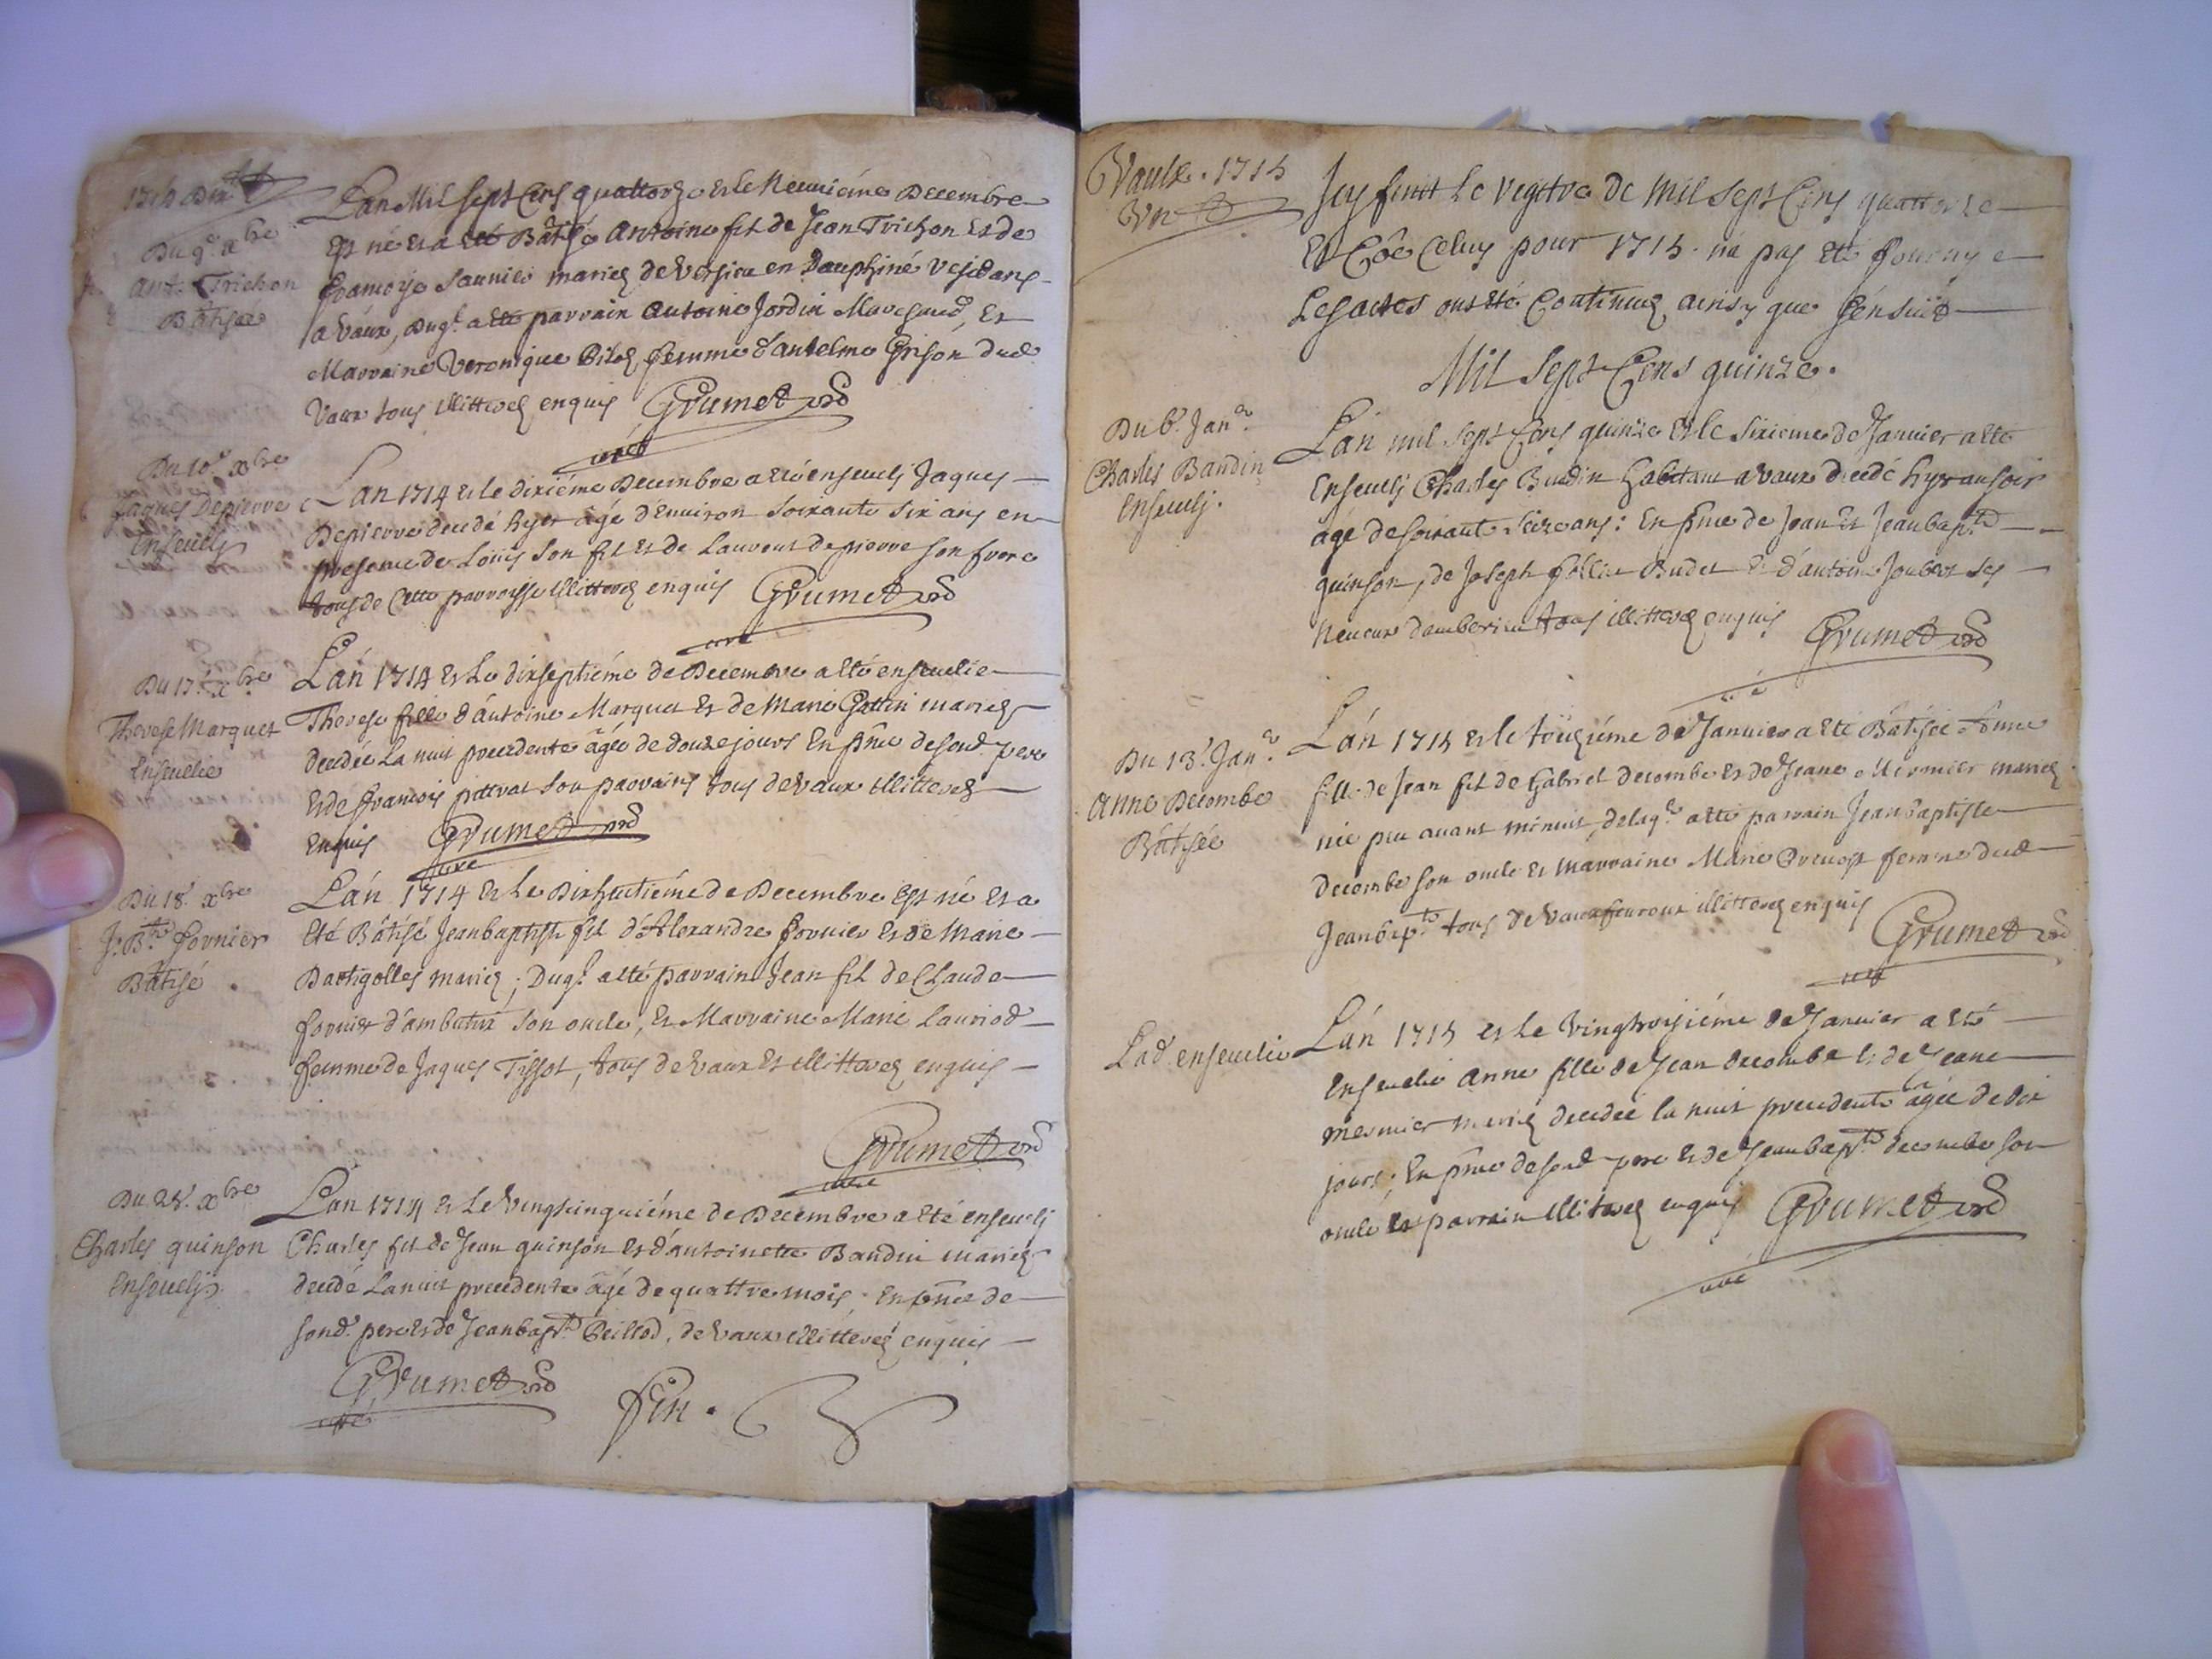 Du 9e xbre
Ant. Trichon
Bâtisé
Lan Mil sept Cens quattorze et le Neuuiéme Decembre
Est né et a eté Bâtisé Antoine fil de Jean Trichon et de
francoise Saunier mariez de Versieu en Dauphiné residans
a Vaux, duql a eté parrain Antoine Jordin Marchand, et
Marraine Veronique Biloz femme d'Antelme Grison dud
Vaux tous illitterez enquis Grumet
curé
Du 10e xbre
Jaques Depierre
Enseuely
Lan 1714 et le dixiéme Decembre a eté enseuely Jaques
Depierre decedé hyer agé d'enuiron soixante six ans en
presence de Louis son fil et de Laurent depierre son frere
tous de Cette parroisse illitterez enquis Grumet
curé
Du 17e xbre
Therese Marquet
Enseuelie
Lán 1714 et Le dixseptiéme de Decembre a Eté enseuelie
Therese fille d'Antoine Marquet et de Marie Gottin mariez
decedée La nuit precedente âgée de douze jours En pnce de sond pere
et de francois pittrat son parrain, tous de Vaux illitterez
Enquis Grumet
curé
Du 18e xbre
J. Bte fornier
Bâtisé
Lán 1714 et Le Dixhuitiéme de Decembre Est né et a
Eté Bâtisé Jeanbaptiste fil d'Alexandre fornier et de Marie
Dartigolles mariez; Duql a eté parrain Jean fil de Claude
fornier d'ambutrix son oncle, et Marraine Marie Lauriod
femme de Jaques Tissot, tous de Vaux et illitterez enquis
Grumet
curé
Du 25e xbre
Charles quinson
Enseuely
Lan 1714 et Le Vingtcinquiéme de Decembre a Eté enseuely
Charles fil de Jean quinson et d'antoinette Baudin mariez
decedé La nuit precedente âgé de quattre mois; En pnce de
sond. pere et de Jeanbapte Beillod, de Vaux illitterez enquis
Grumet
curé
fin.
Vaulx. 1715
Icy finit Le registre de Mil sept Cens quattorze
Et Côe Celuy pour 1715. n'a pas Eté fourny
Les actes ont eté Continuez ainsy que s'ensuit
Mil Sept Cens quinze.
Du 6e Janer
Charles Baudin
Enseuely.
Lán mil sept Cens quinze et le sixieme de Janvier a eté
Enseuely Charles Baudin habitant a Vaux decedé hyer au soir
agé de soixante seize ans: En pnce de Jean et Jeanbapte
quinson, de Joseph follier Budet et d'antoine Joubert ses
Neueux d'amberieu tous illitterez enquis Grumet
curé
Du 13e Janer
Anne Decombe
Bâtisée
Lán 1715 et le treiziéme de Janvier a Eté Bâtisée Anne
fille de Jean fil de Gabriel decombe et de Jeane Mermier mariez
née peu auant minuit, delaqle a eté parrain Jeanbaptiste
Decombe son oncle et marraine Marie Preuost femme dud
Jeanbapte tous de Vaux illitterez enquis
Grumet
curé
Lad. enseuelie
Lán 1715 et Le Vingtroisiéme de Janvier a Eté
Enseuelie Anne fille de Jean decombe et de Jeane
mermier mariez decedée la nuit precedente agée de dix
jours; En pnce de sond pere et de Jeanbapte decombe son
oncle et parrain illitterez enquis Grumet
curé